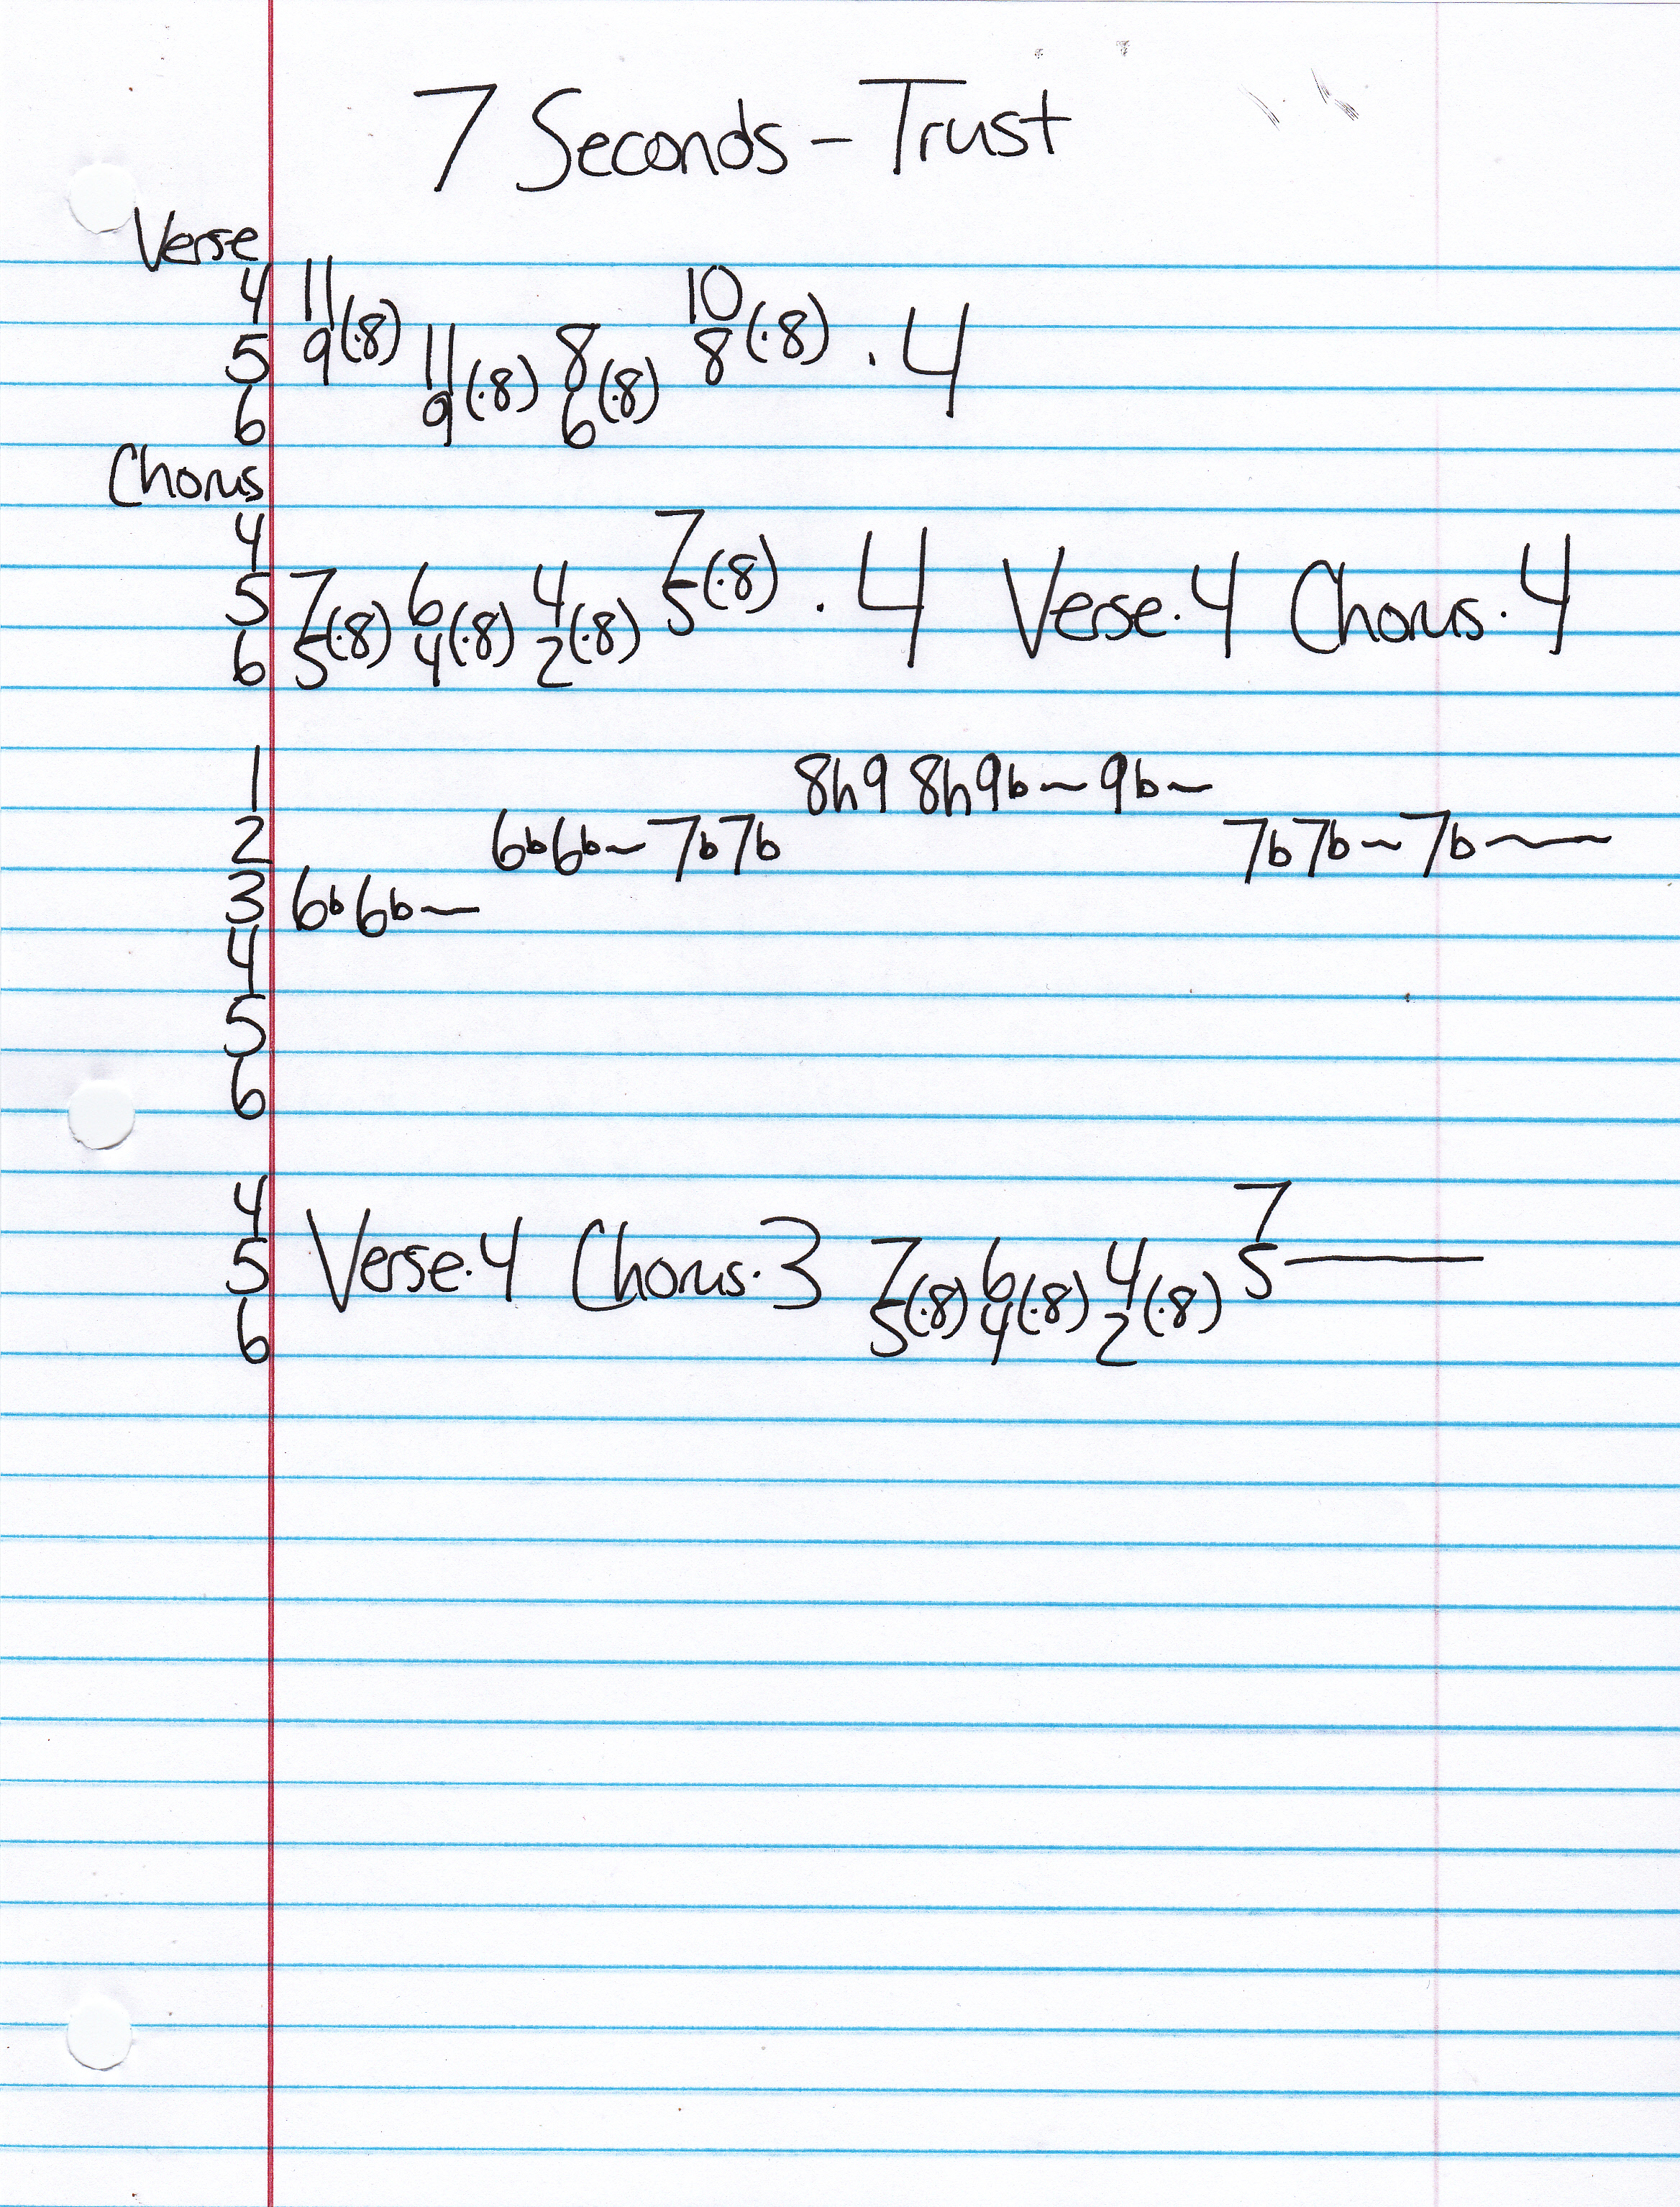 7 Seconds - Trust
Verse
4 11 10
5 9(·8) 11 8 8(·8) . 4
6 9(·8) 6(·8)
Chorus
4 7
5 7 6 4 5(·8) . 4 Verse·4 Chorus·4
6 5(·8) 4(·8) 2(·8)
1 8h9 8h9b~ 9b~
2 6b6b~ 7b7b 7b7b~ 7b~
3 6b6b~
4
5
6
4 7
5 Verse·4 Chorus·3 7 6 4 5—
6 5(·8) 4(·8) 2(·8)